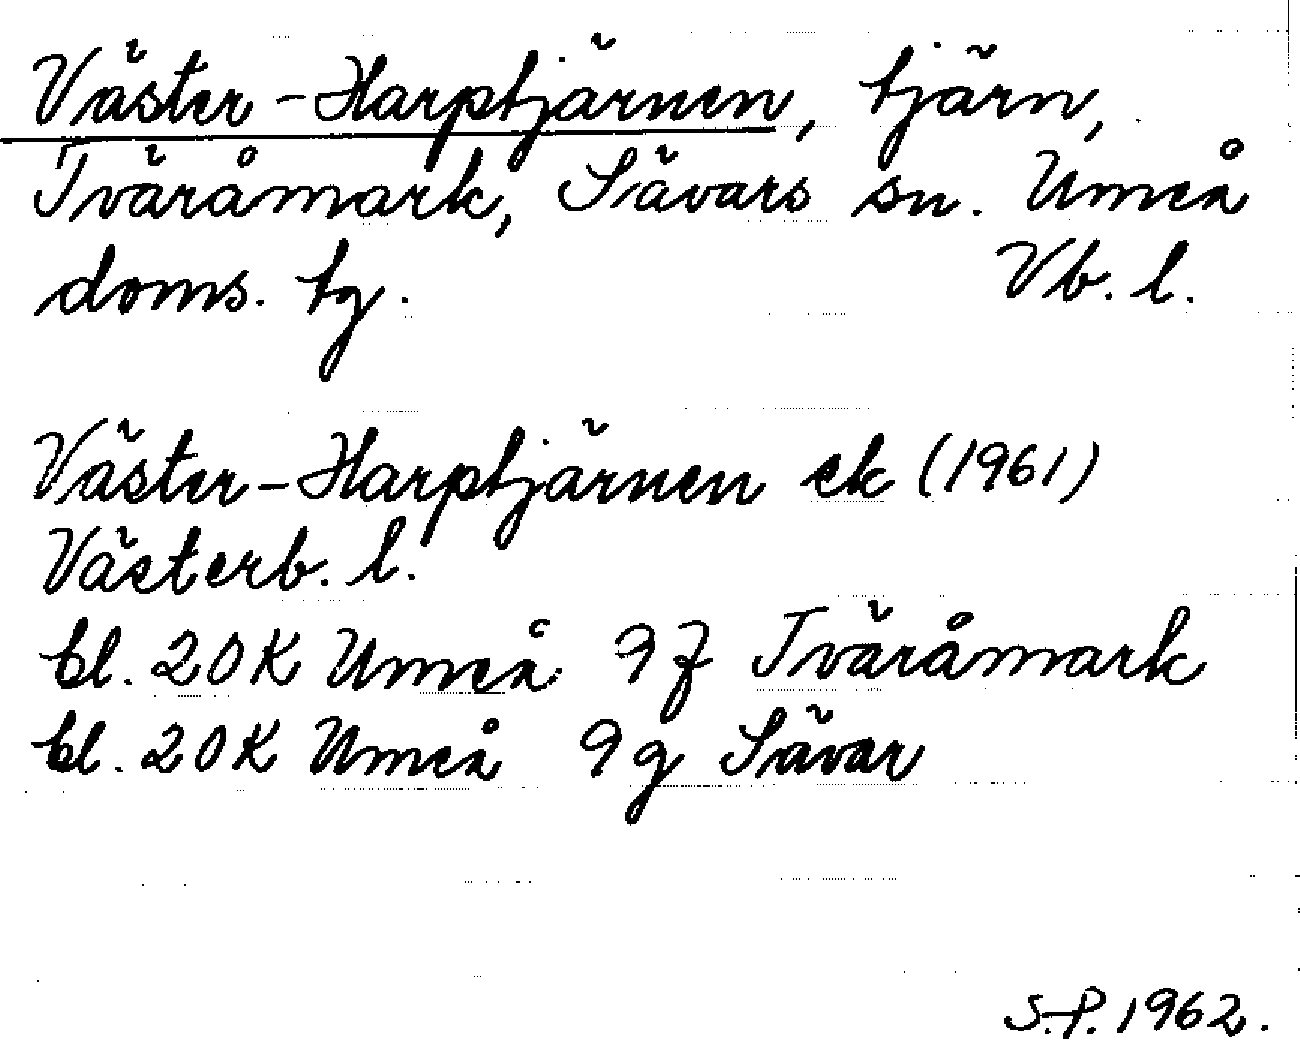 Väster-Harptjärnen, tjärn,
Tväråmark, Sävars sn. Umeå
doms. tg. Vb. l.
Väster-Harptjärnen ek (1961)
Västerb. l.
bl. 20K Umeå 9f Tväråmark
bl. 20K Umeå 9g Sävar
S.P. 1962.